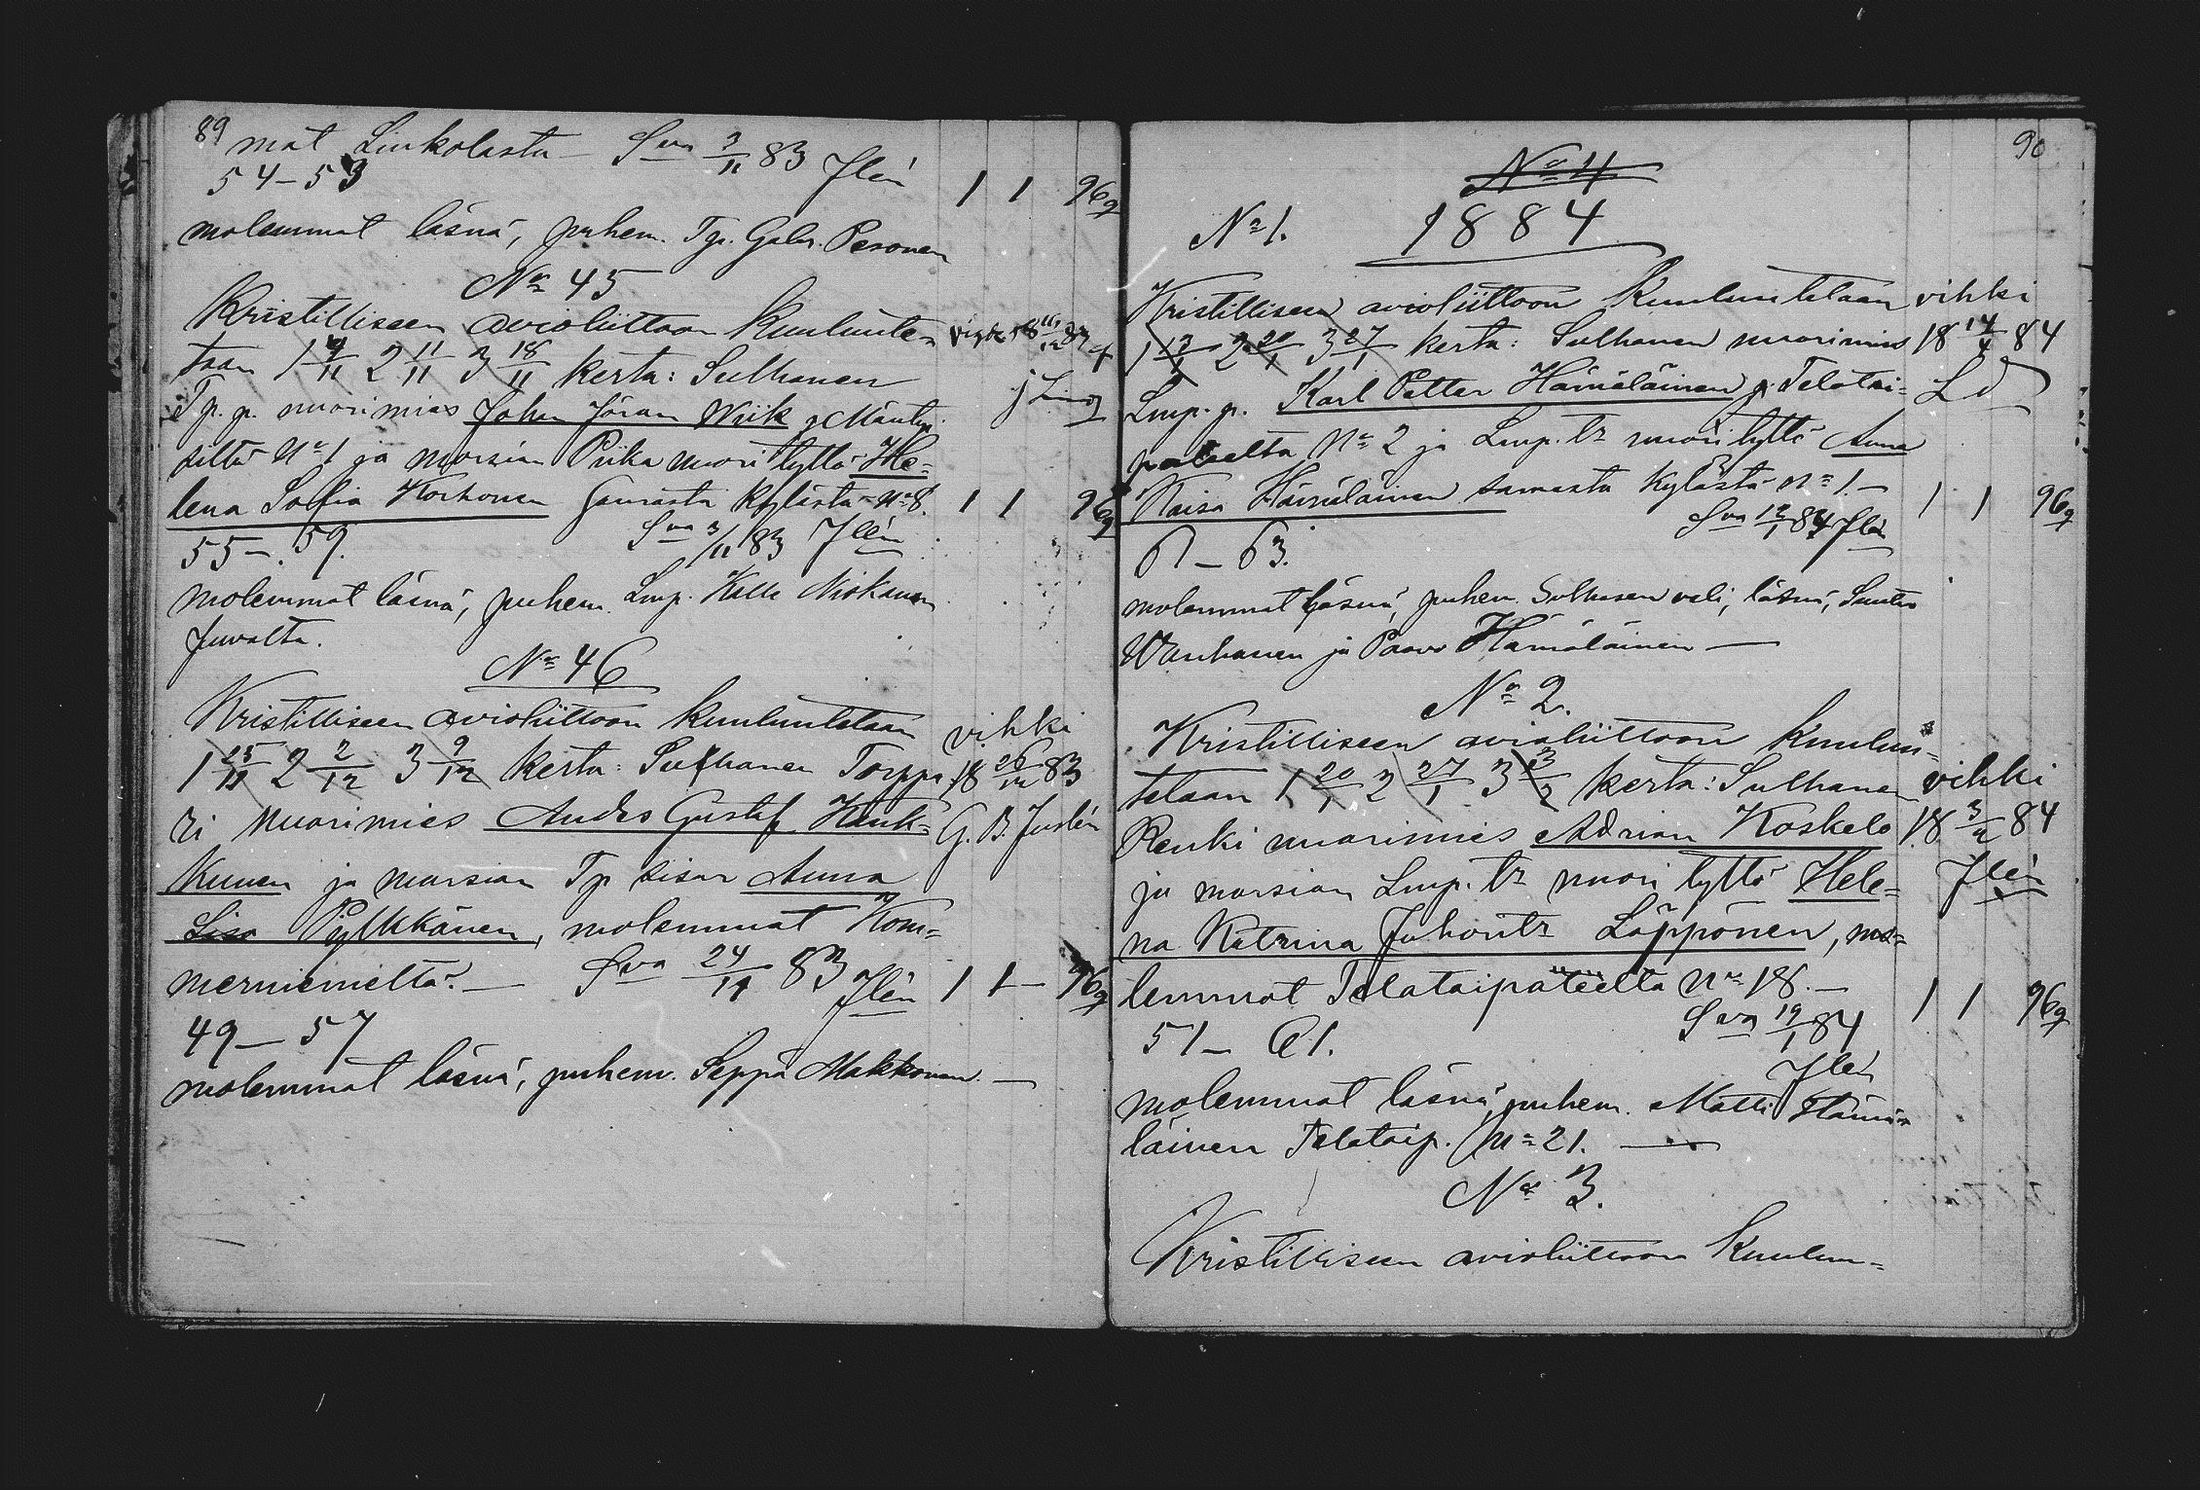 89
mat Linkolasta — Sva 3/11 83 Jlén
54–59
1 1 96
molemmat läsnä, puhem. Tp. Gabr. Pesonen
No 45
Kristilliseen avioliittoon kuulute-
taan 1 4/11 2 11/11 3 18/11 kerta: Sulhanen
Tp. p. nuorimies Johan Jöran Wiik
siltä No 1 ja morsian Piika nuori tyttö He-
lena Sofia Korhonen samasta kylästä No 8.
1 1 96
55–59.
Sva 3/11 83 Jlén
molemmat läsnä, puhem. Lmp. Kalle Niskanen
Juvalta.
No 46
Kristilliseen avioliittoon kuulutetaan
1 25/11 2 2/12 3 9/12 kerta: Sulhanen Torppa-
ri nuorimies Anders Gustaf Hauk-
kunen ja morsian Tp sisar Anna
Lisa Pylkkänen, molemmat Kom-
merniemeltä. —
vihki
18 26/12 83
G. B. Juslén
Sva 24/11 83 Jlén
1 1 – 96
49–57
molemmat läsnä, puhem. Seppä Makkonen. —
90
No 4
No 1. 1884
Kristilliseen avioliittoon kuulutetaan
1 13/1 2 20/1 3 27/1 kerta: Sulhanen nuorimies
Lmp. p. Karl Petter Hämäläinen Telatai-
paleelta No 2 ja Lmp. tr nuori tyttö Anna
Kaisa Hämäläinen samasta kylästä No 1. —
vihki
18 14/4 84
Sva 12/1 84 Jlén
1 1 96
61–63.
molemmat läsnä, puhem. Sulhasen veli, läsnä,
Wanhanen ja Paavo Hämäläinen —
No 2.
Kristilliseen avioliittoon kuulu-
tetaan 1 20/1 2 27/1 3 3/2 kerta: Sulhanen
Renki nuorimies Adrian Koskelo
ja morsian Lmp. tr nuori tyttö Hele-
na Katrina Juhontr Läppönen, mo-
lemmat Telataipaleelta No 18. —
vihki
18 3/2 84
Jlén
Sva 19/1 84
Jlén
1 1 96
51–61.
molemmat läsnä, puhem. Matti Hämä-
läinen Telataip. No 21. —
No 3.
Kristilliseen avioliittoon kuulu-